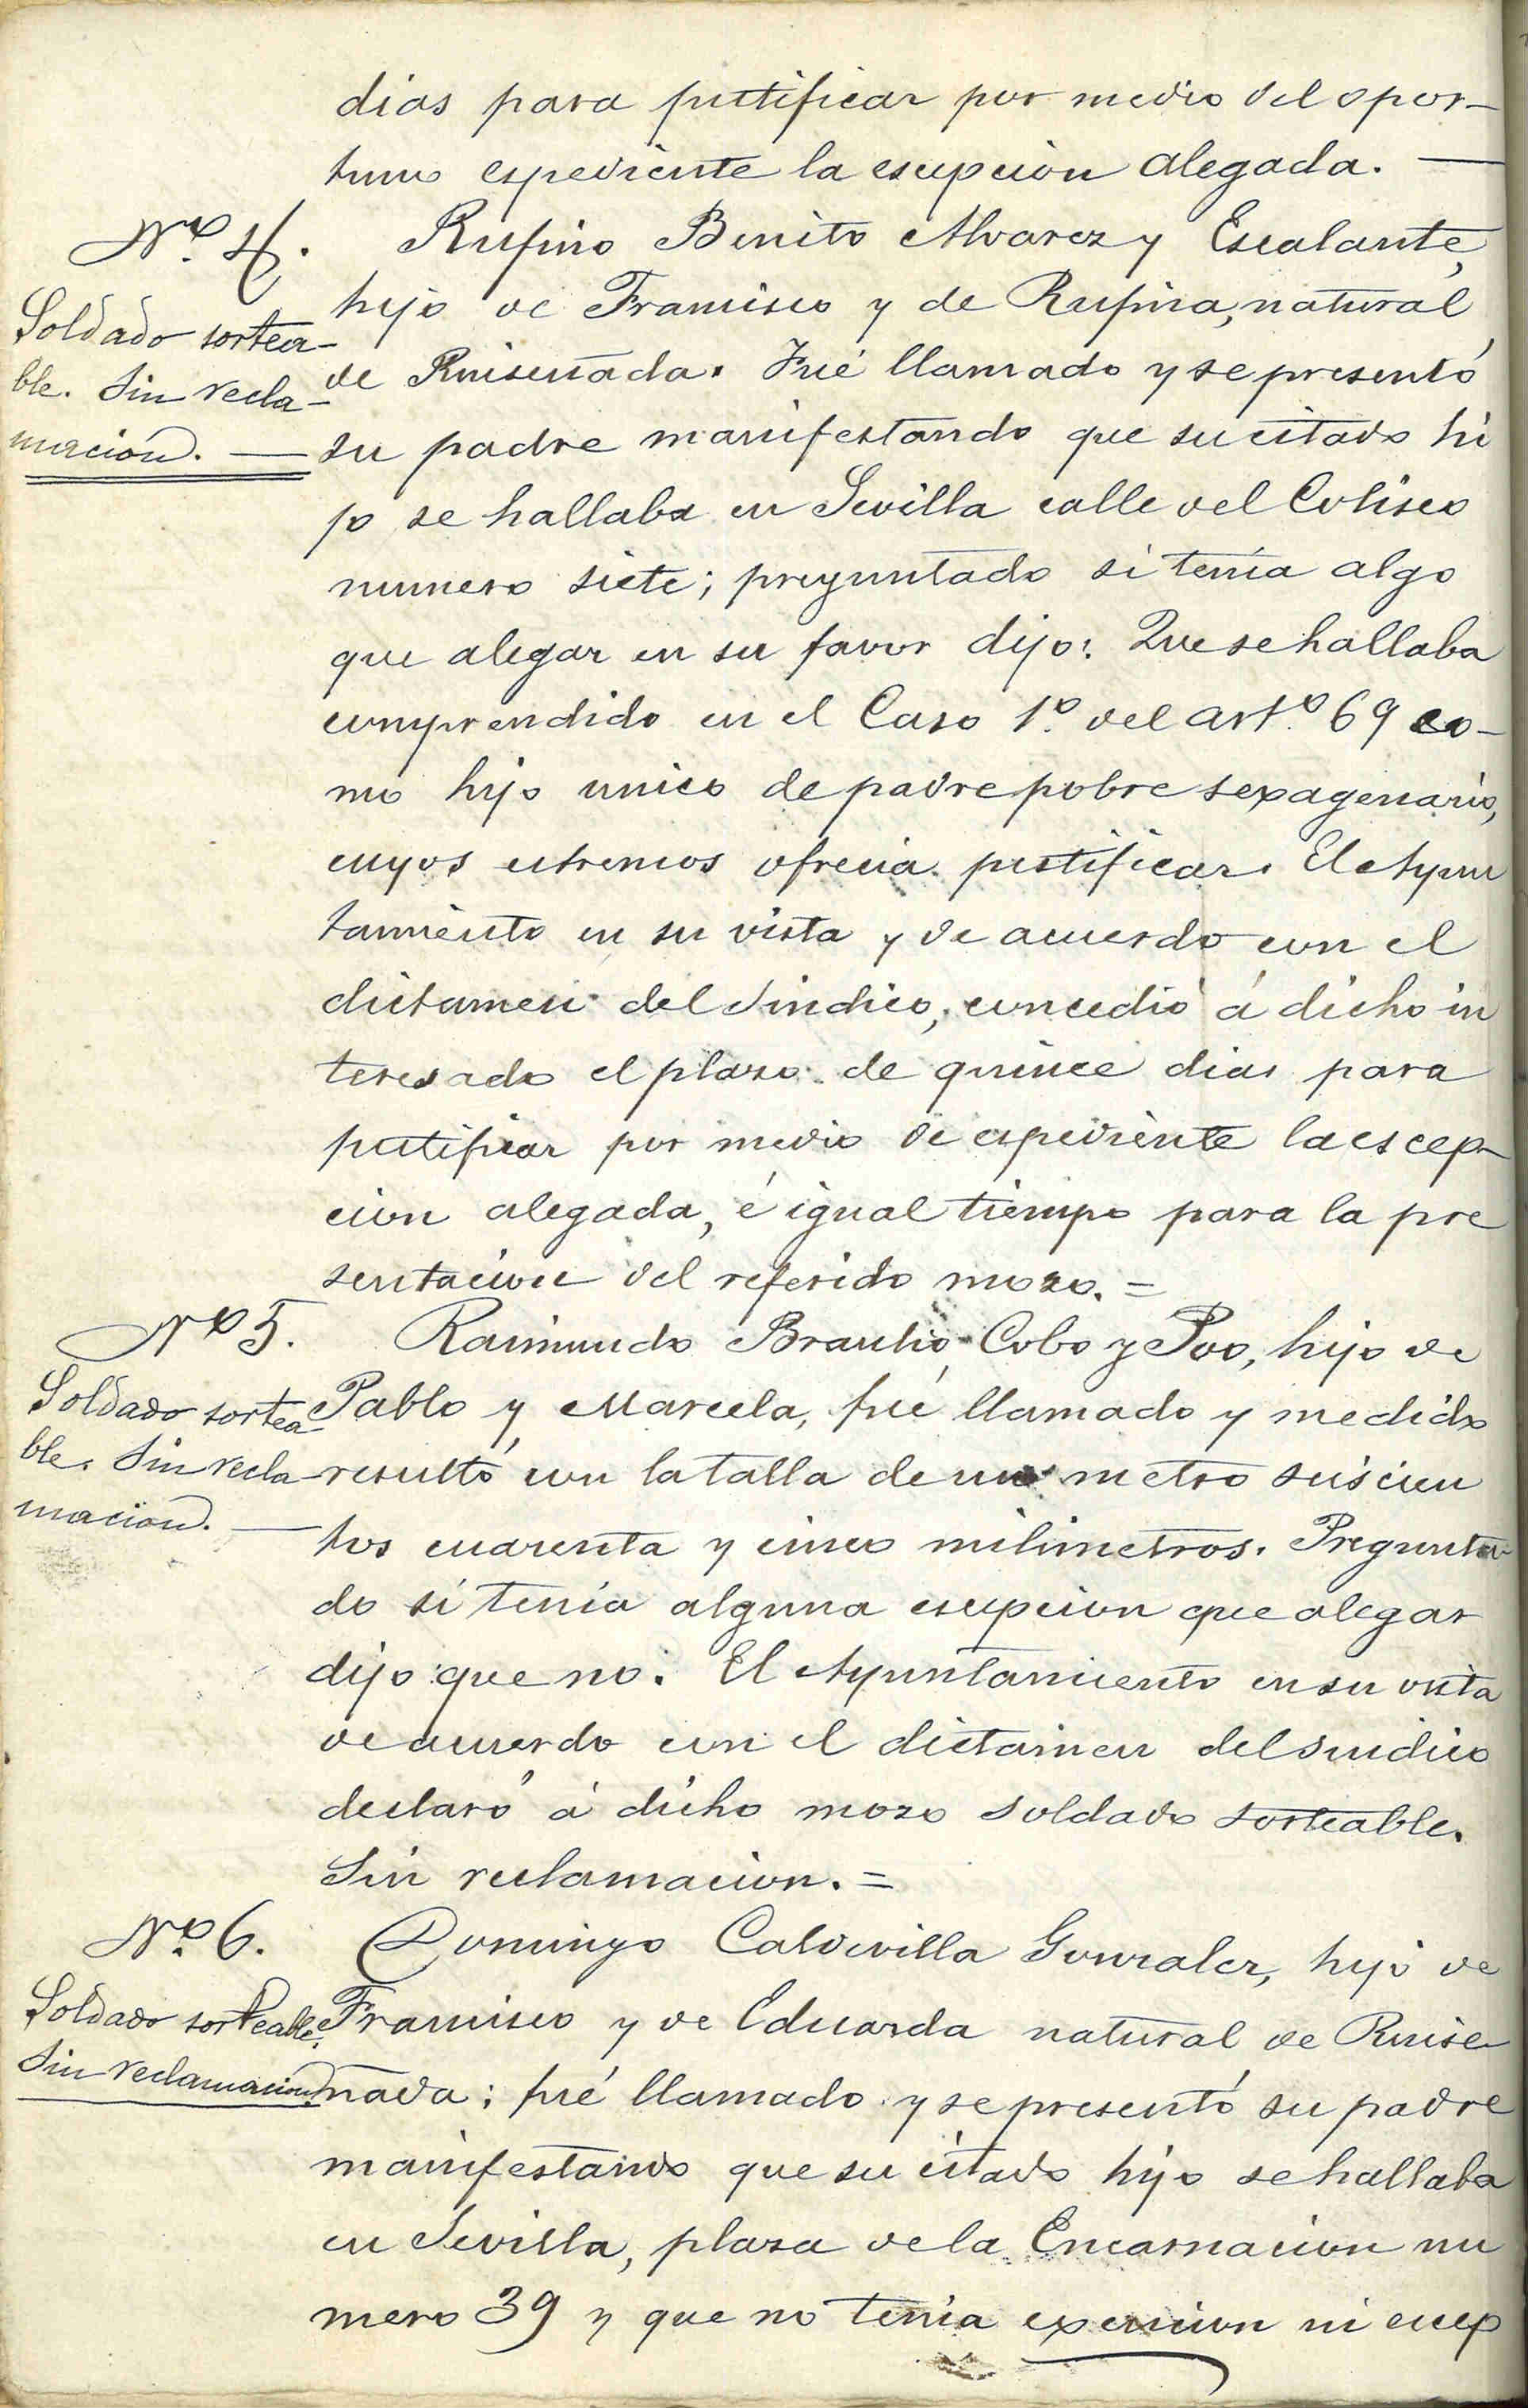 dias para justificar por medio del opor-
tuno espediente la escepcion alegada. —
Nº. 4.
Soldado sortea-
ble. Sin recla-
macion. —
Rufino Benito Alvarez y Escalante,
hijo de Francisco y de Rufina, natural
de Ruiseñada. Fué llamado y se presentó
su padre manifestando que su citado hi
jo se hallaba en Sevilla calle del Coliseo
numero siete; preguntado si tenia algo
que alegar en su favor dijo: Que se hallaba
comprendido en el Caso 1º. del artº. 69 co-
mo hijo unico de padre pobre sexagenario,
cuyos estremos ofrecia justificar. El Ayun
tamiento en su vista y de acuerdo con el
dictamen del Sindico, concedió á dicho in
teresado el plazo de quince dias para
justificar por medio de espediente la escep-
cion alegada, é igual tiempo para la pre
sentacion del referido mozo. =
Nº 5.
Soldado sortea
ble. Sin recla
macion. —
Raimundo Braulio Cobo y Poo, hijo de
Pablo y Marcela, fué llamado y medido
resultó con la talla de un metro seiscien
tos cuarenta y cinco milimetros. Pregunta-
do si tenia alguna escepcion que alegar
dijo que no. El Ayuntamiento en su vista
de acuerdo con el dictamen del Sindico
declaró á dicho mozo soldado sorteable.
Sin reclamacion. =
Nº. 6.
Soldado sorteable.
Sin reclamacion.
Domingo Caldevilla Gonzalez, hijo de
Francisco y de Eduarda natural de Ruise-
ñada; fué llamado y se presentó su padre
manifestando que su citado hijo se hallaba
en Sevilla, plaza de la Encarnacion nu
mero 39 y que no tenia exencion ni escep